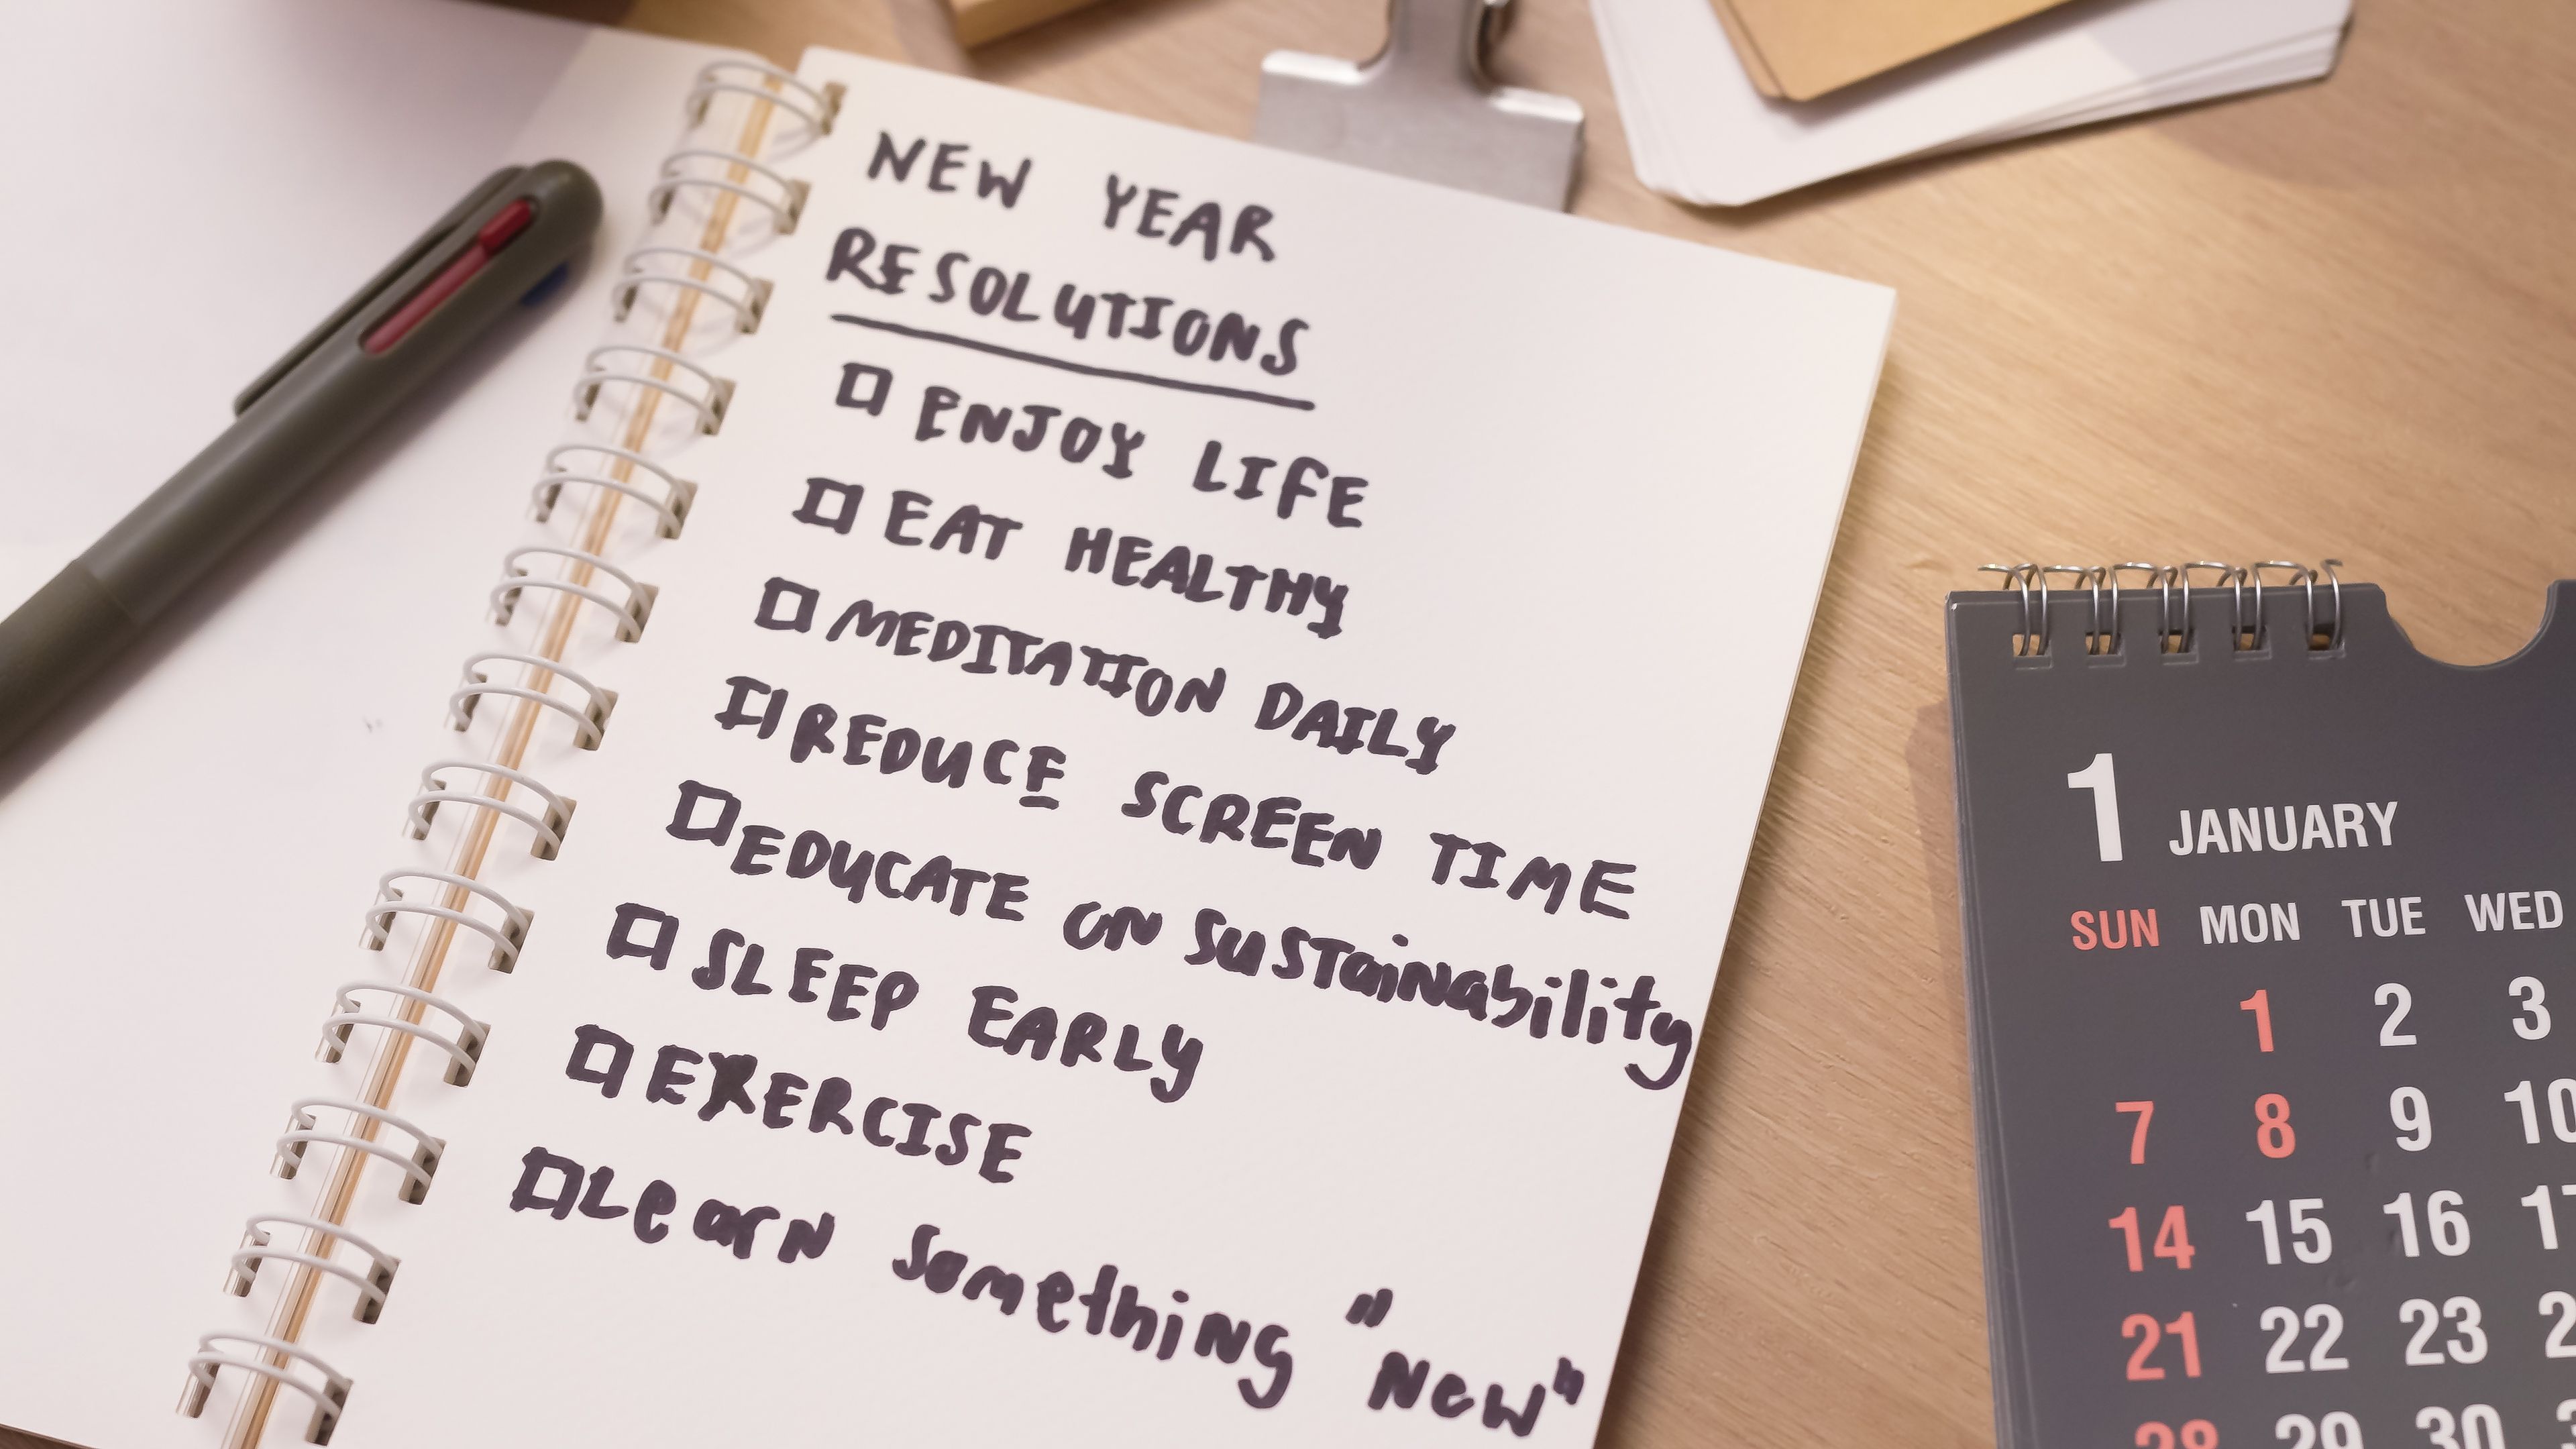 NEW YEAR
RESOLUTIONS
ENJOY LIFE
EAT HEALTHY
MEDITATION DAILY
REDUCE SCREEN TIME
EDUCATE ON SUSTainability
SLEEP EARLY
EXERCISE
Learn Something "New"
1 JANUARY
SUN MON TUE WED
1 2 3
7 8 9 10
14 15 16
21 22 23
28 29 30